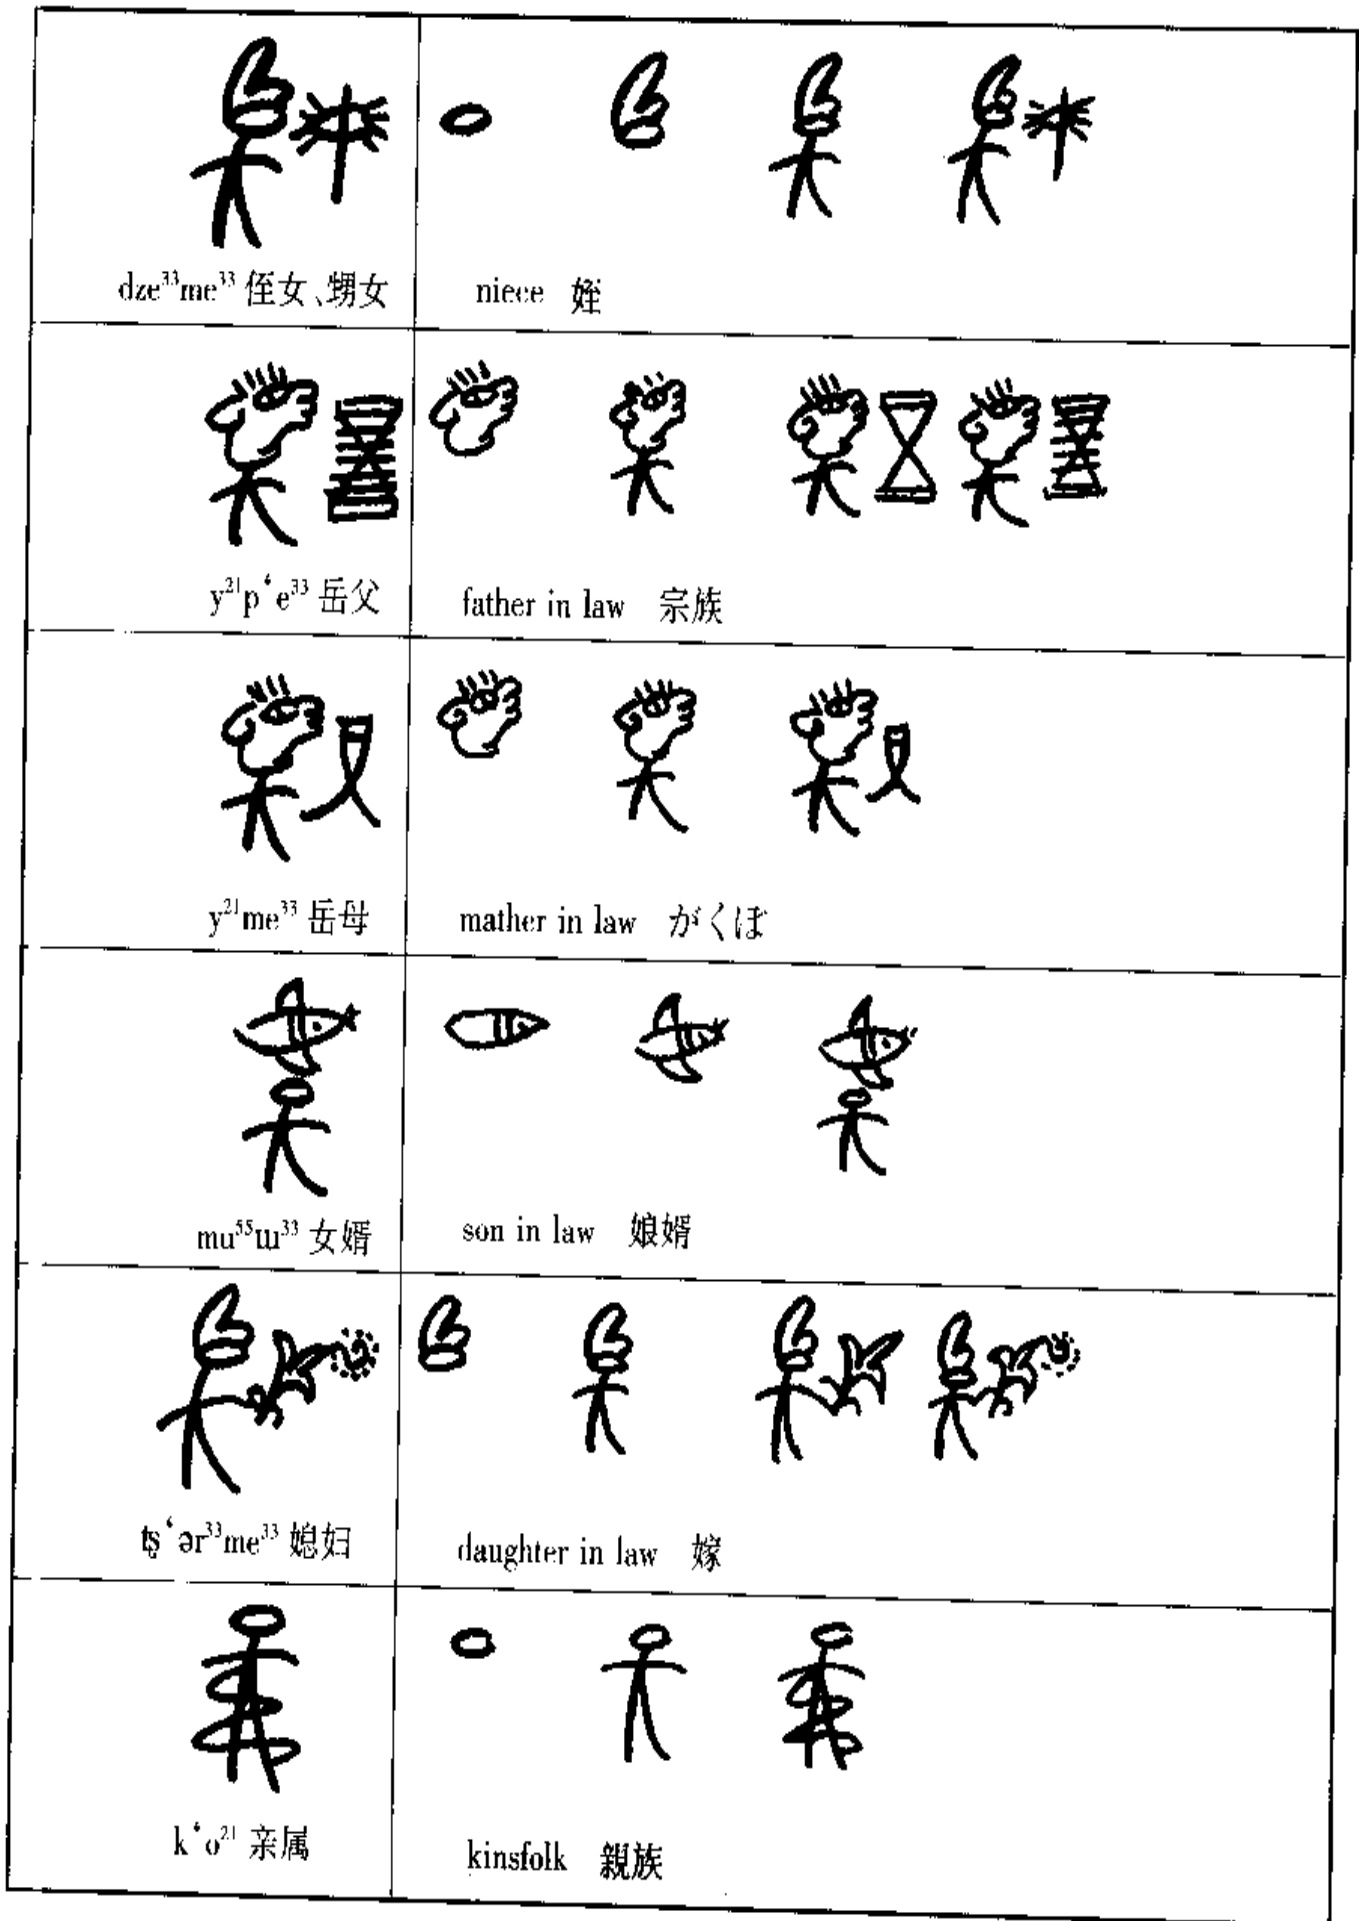 dze³³me³³ 侄女、甥女
niece 姪
y²¹pʻe³³ 岳父
father in law 宗族
y²¹me³³ 岳母
mather in law がくぼ
mu⁵⁵ɯ³³ 女婿
son in law 娘婿
tʂʻər³³me³³ 媳妇
daughter in law 嫁
kʻo²¹ 亲属
kinsfolk 親族